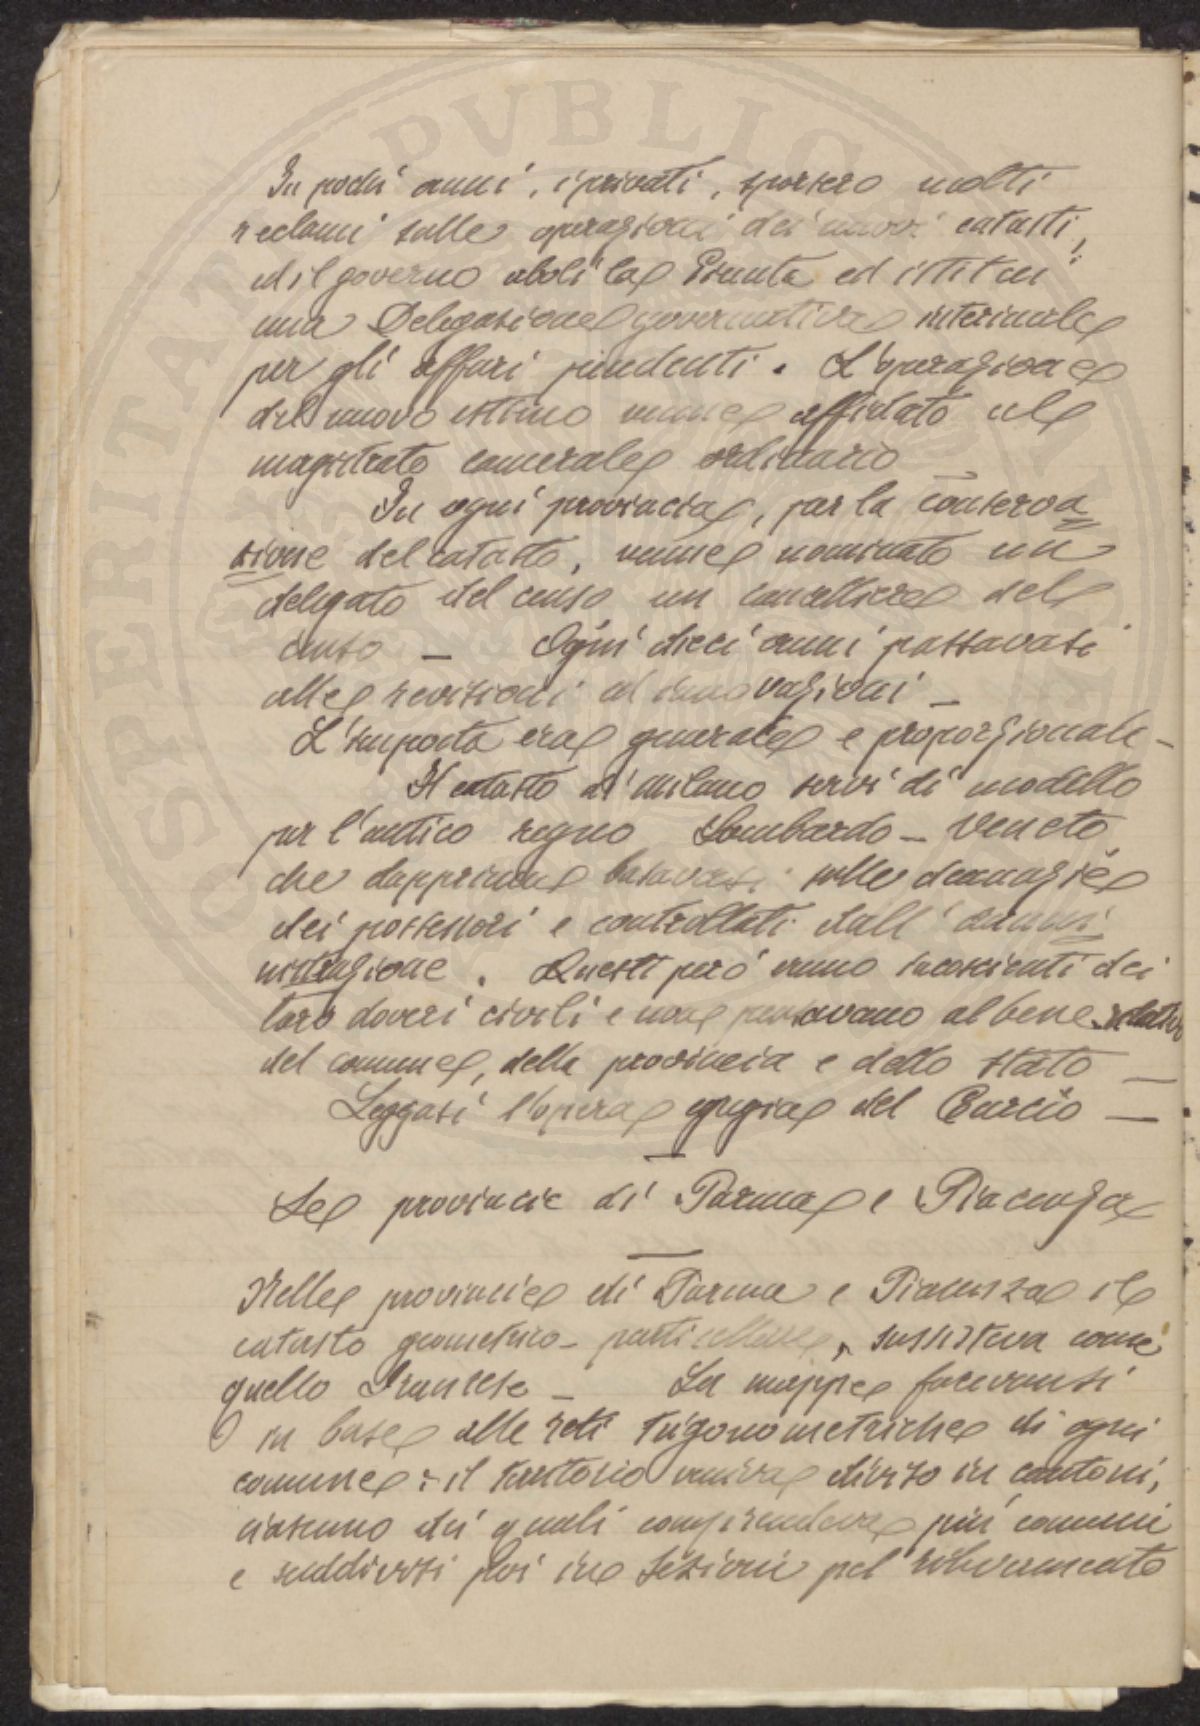 In pochi anni, i privati, sporsero molti
reclami sulle operazioni dei nuovi catasti,
ed il governo abolì la Giunta ed istituì
una Delegazione governativa interinale
per gli affari pendenti. L'operazione
del nuovo estimo venne affidato al
magistrato camerale ordinario
In ogni provincia, per la conserva=
zione del catasto, venne nominato un
delegato del censo un cancelliere del
censo — Ogni dieci anni passavasi
alle revisioni ed innovazioni —
L'imposta era generale e proporzionale —
Il catasto di Milano servì di modello
per l'antico regno Lombardo - Veneto
che dapprima basavasi sulle denunzie
dei possessori e controllati dall' ammi=
nistrazione. Questi però erano incoscienti dei
loro doveri civili e non pensavano al bene
del comune, della provincia e dello Stato —
Leggasi l'opera egregia del Curcio —
Le provincie di Parma e Piacenza
Nelle provincie di Parma e Piacenza il
catasto geometrico - particellare, sussisteva come
quello Francese — La mappe facevansi
in base alle reti trigonometriche di ogni
comune : il territorio veniva diviso in cantoni,
ciascuno dei quali comprendeva più comuni
e suddivisi poi in Sezioni pel rilevamento